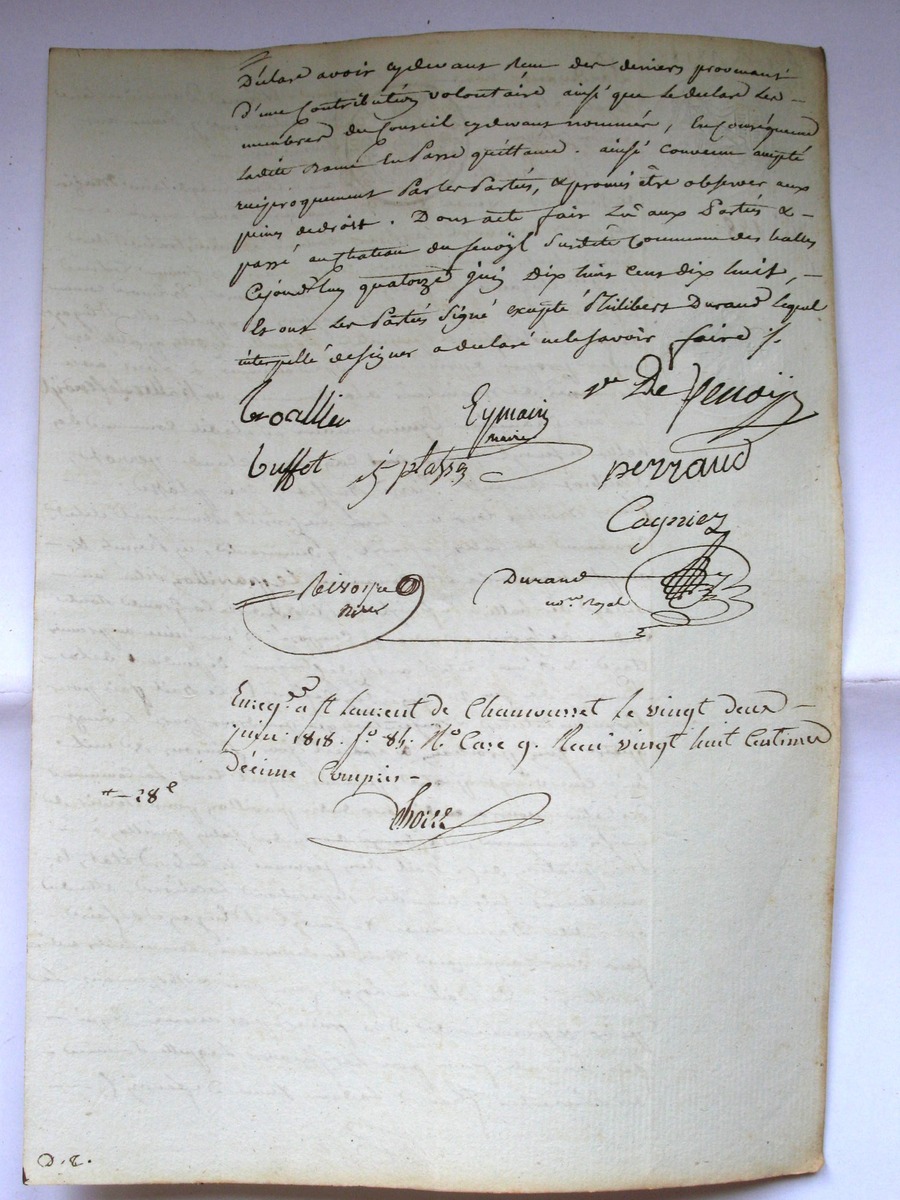 Déclare avoir cydevant Recu des deniers provenant
D'une Contribution volontaire ainsi que le declare les
membres du Conseil cydevant nommés, En Conséquence
ladite Dame En Passe quittance. ainsi convenu accepté
réciproquement Par les Partis, & promis être observer aux
peines de droit. Dont acte fait Lu aux Partis &
passé au Chateau du fenoÿl Susdite Commune des halles
Cejourd'huy quatorze juin Dix huit cent dix huit,
Et ont les Partis Signé excepté Philibert Durand lequel
interpellé de signer a declaré ne le savoir faire ./.
Eymain Ve De fenoÿl
maire
Buffet plasse perraud
Cagniez
Durand
nore Royal
Enregré a St Laurent de Chamousset le vingt deux
juin 1818. fo 85. Ro Case 9. Recu vingt huit Centimes
Décime Compris
28c
D.C.